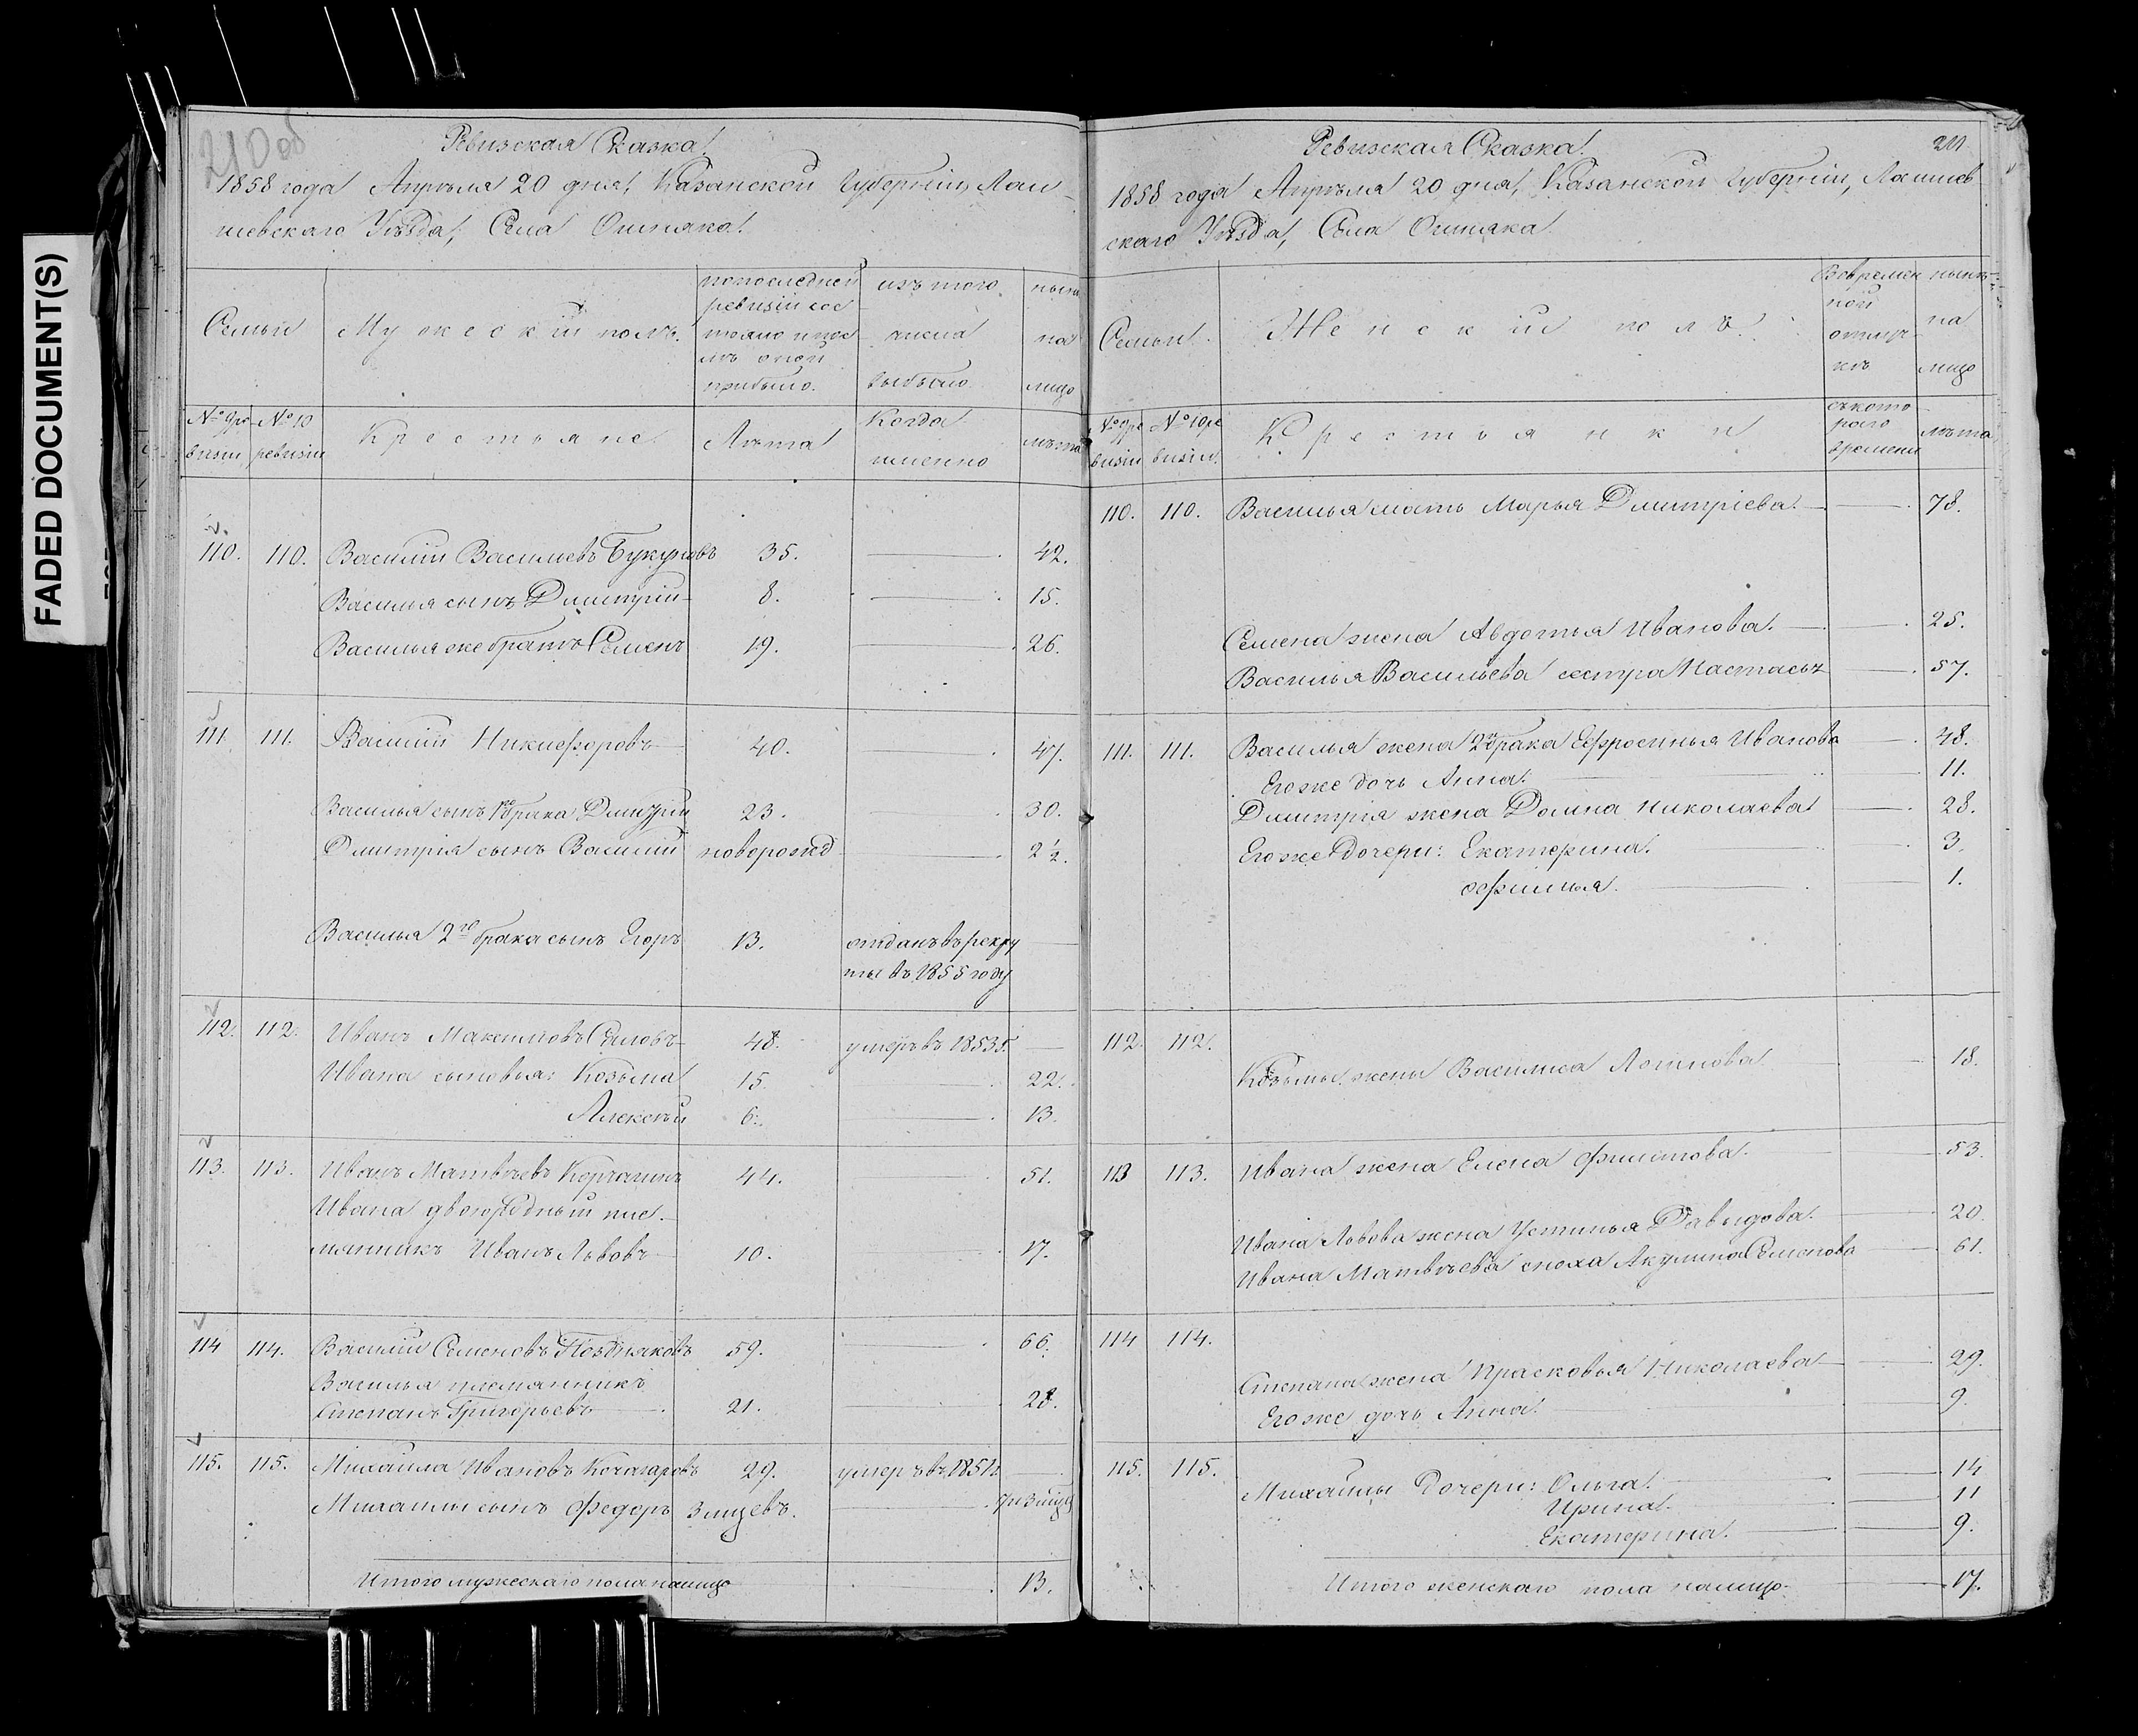 FADED DOCUMENT(S)
210 об
Ревизская Сказка.
1858 года Апрѣля 20 дня, Казанской Губерніи, Лаи-
шевскаго Уѣзда, Села Ошняка.
Семьи
Мужескій полъ.
по последней
ревизіи сос
тояло и пос
лѣ оной
прибыло.
изъ того
числа
выбыло.
ныне
на
лицо
№ 9 ре
визіи
№ 10
ревизіи
Крестьяне
Лѣта
Когда
именно
лѣта
110. 110. Василій Васильевъ Букуновъ 35. 42.
Василья сынъ Дмитрій 8. 15.
Василья же братъ Семенъ 19. 26.
111. 111. Василій Никифоровъ 40. 47.
Василья сынъ 1го брака Дмитрій 23. 30.
Дмитрія сынъ Василій новорожд 2½.
Василья 2го брака сынъ Егоръ 13. отданъ въ рекру
ты въ 1855 году
112. 112. Иванъ Максимовъ Силовъ 48. умеръ въ 1853 г.
Ивана сыновья: Козьма 15. 22.
Алексѣй 6. 13.
113. 113. Иванъ Матвѣевъ Корчагинъ 44. 51.
Ивана двоюродный пле-
мянникъ Иванъ Львовъ 10. 17.
114 114. Василій Семеновъ Поздняковъ 59. 66.
Василья племянникъ
Степанъ Григорьевъ 21. 28.
115. 115. Михайла Ивановъ Кочагаровъ 29. умеръ въ 1851 г.
Михайлы сынъ Федоръ 3 мцевъ. 7 и 3 мцев
Итого мужескаго пола налицо 13.
Ревизская Сказка.
211
1858 года Апрѣля 20 дня, Казанской Губерніи, Лаишев
скаго Уѣзда, Села Ошняка.
Семьи.
Женскій полъ.
Вовремен
ной
отлуч-
кѣ
нынѣ
на
лицо
№ 9 ре
визіи
№ 10 ре
визіи.
Крестьянки
съ кото
раго
времени
лѣта
110. 110. Василья мать Марья Дмитріева. 78.
Семена жена Авдотья Иванова. 25.
Василья Васильева сестра Настасья 57.
111. 111. Василья жена 2го брака Ефросинья Иванова 48.
Его же дочь Анна. 11.
Дмитрія жена Домна Николаева 28.
Его же дочери: Екатерина. 3.
Офимья. 1.
112. 112. Козьмы жена Василиса Логинова 18.
113 113. Ивана жена Елена Филипова. 53.
Ивана Львова жена Устинья Давыдова. 20.
Ивана Матвѣева сноха Акулина Семенова 61.
114 114. Степана жена Прасковья Николаева 29.
Его же дочь Анна. 9.
115. 115. Михайлы дочери: Ольга. 14
Ирина. 11
Екатерина. 9.
Итого женскаго пола налицо 17.